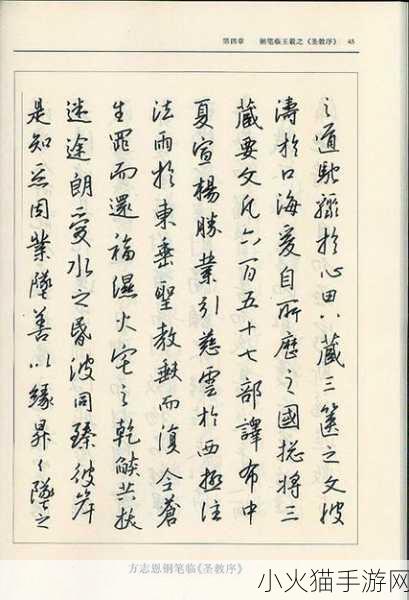 第四章 钢笔临王羲之《圣教序》 45
之道馳驟於心田八藏三篋之文波
濤於口海爰自所歷之國揔將三
藏要文凡六百五十七部譯布中
夏宣揚勝業引慈雲於西極注
法雨於東垂聖教缺而復全蒼
生罪而還福濕火宅之乾燄共拔
迷途朗愛水之昏波同臻彼岸
是知惡因業墜善以緣昇〻墜之
方志恩钢笔临《圣教序》
小火猫手游网